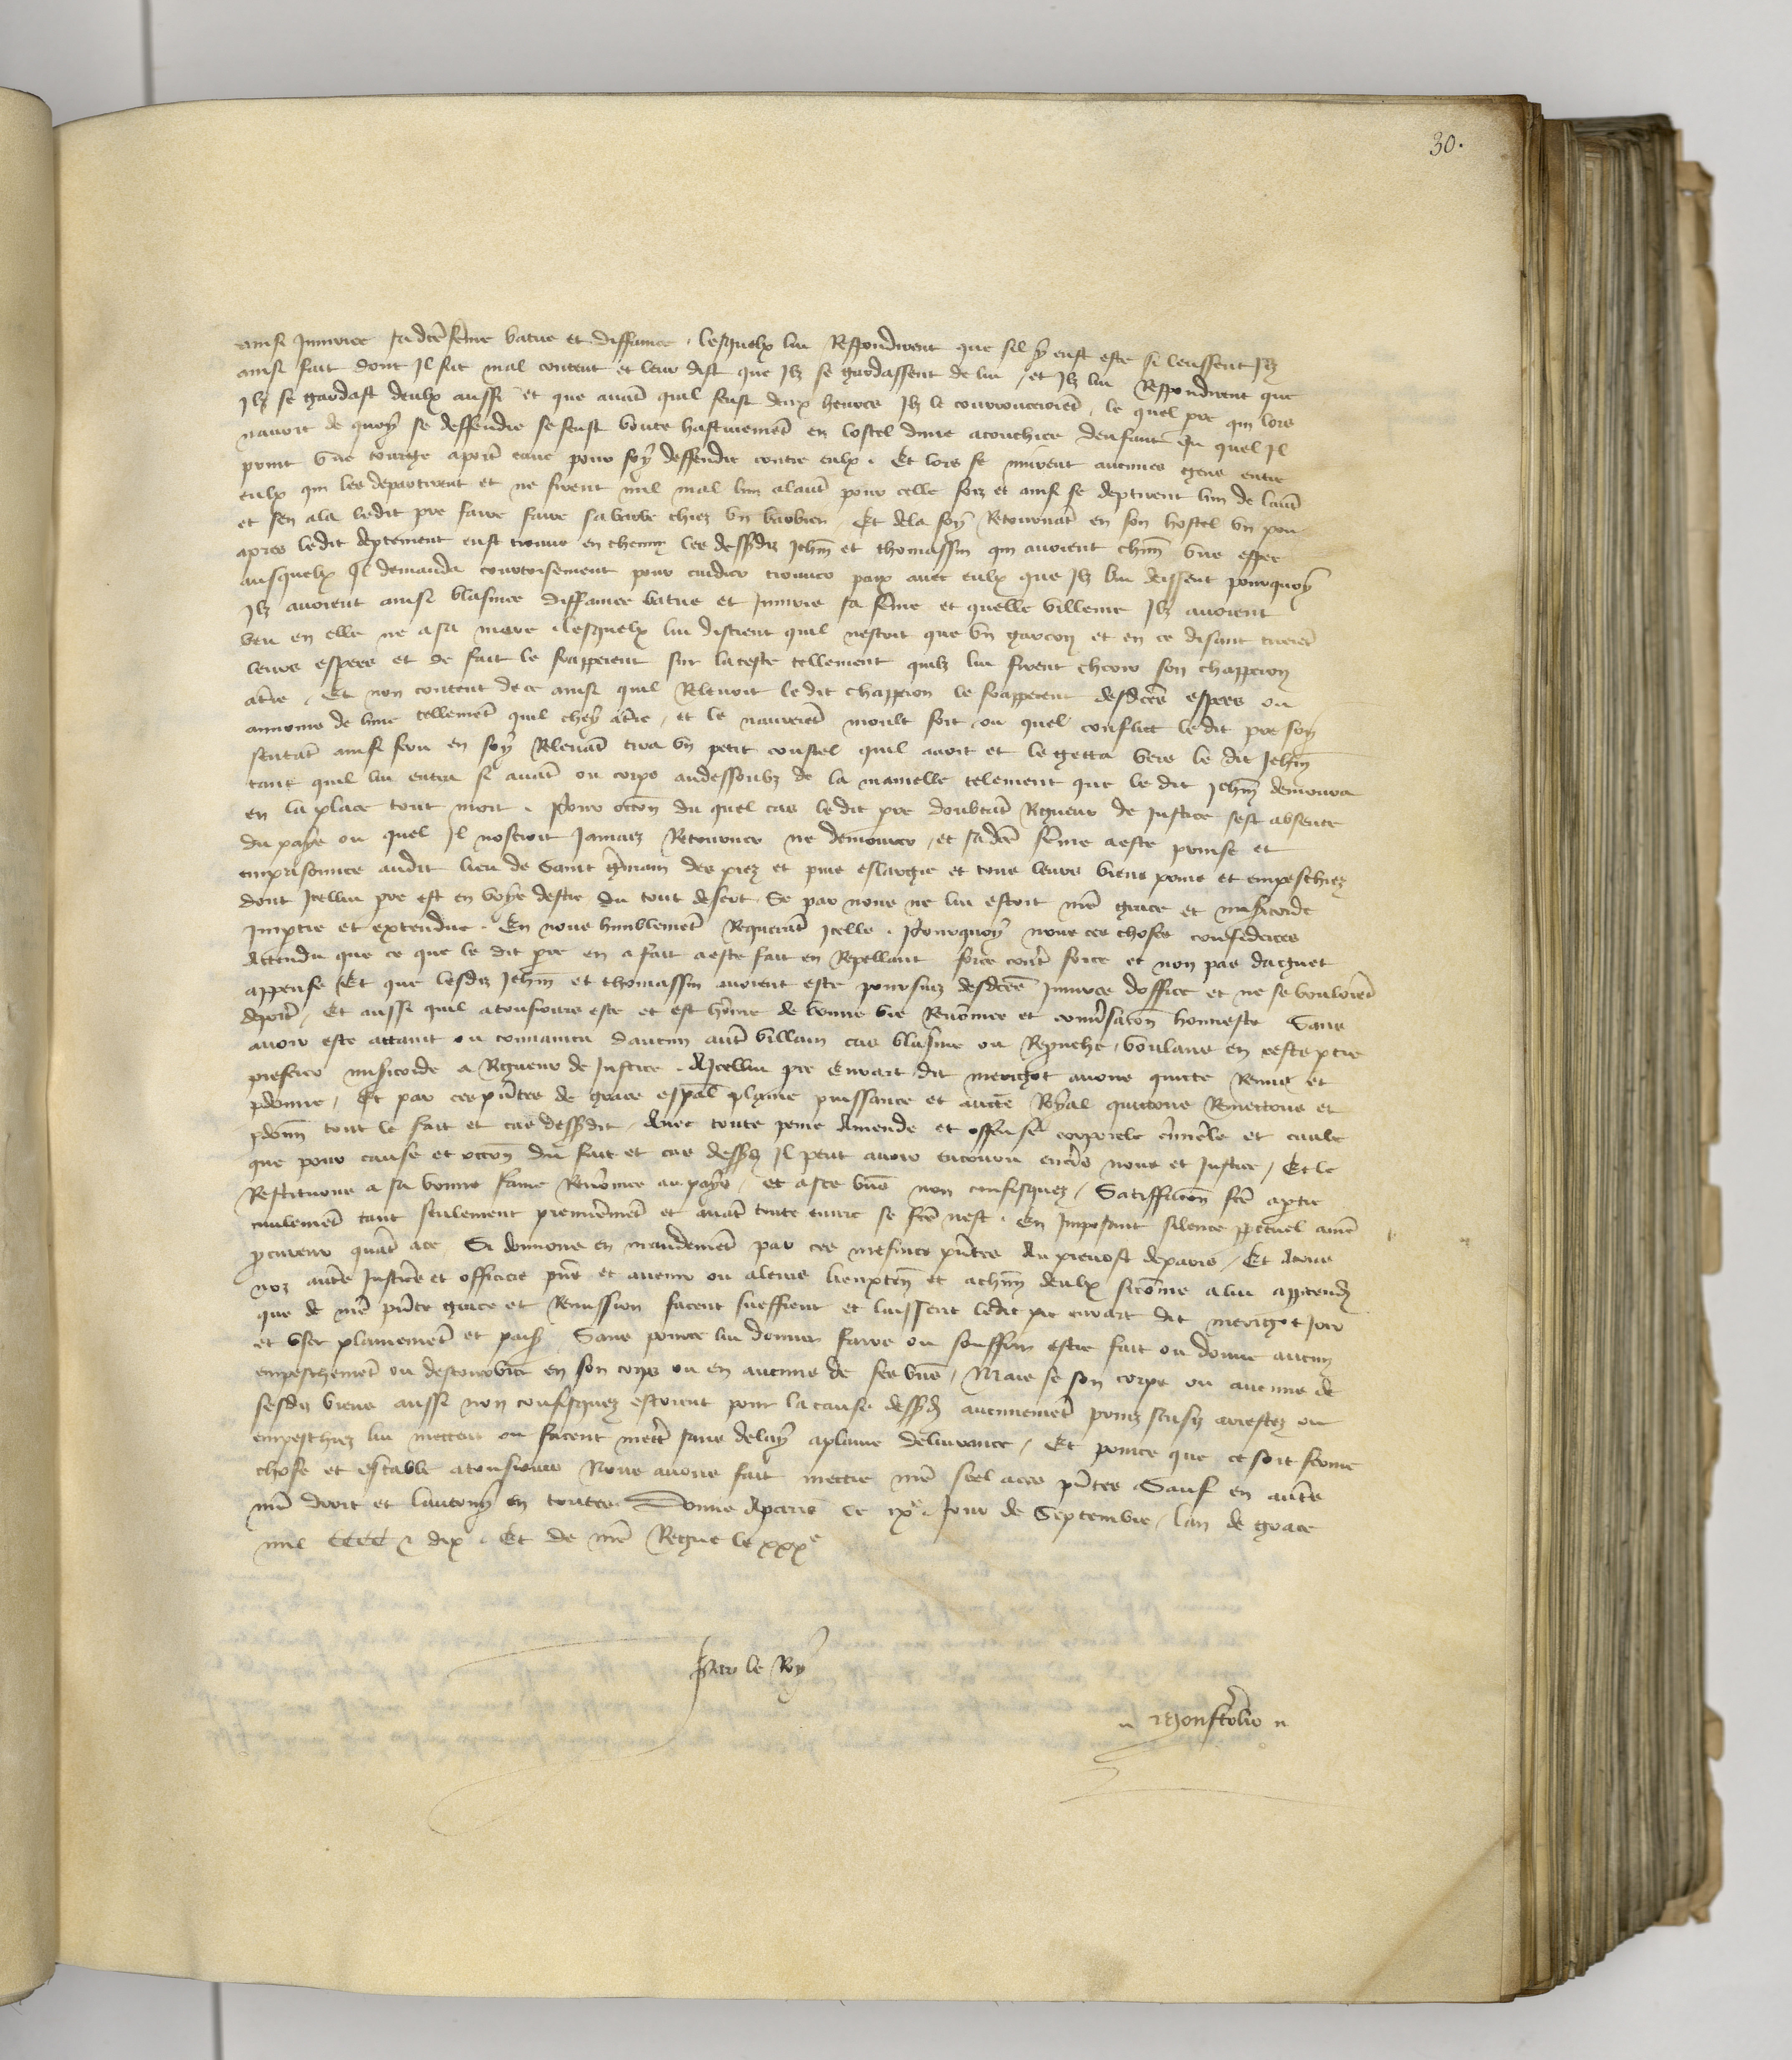 30.
ainsi Iniuriee sa dcẽ fẽme batue et diffamee / lesquelx lui Respondirent que sil y eust este si leussent Ilz
ainsi fait dont Il fut mal content et leur dist que Ilz se gardassent de lui / et Ilz lui Respondirent que
Ilz se gardast deulx aussi et que auãt quil feust deux heures Ilz le courrouceroiẽt / le quel pre qui lors
nauoit de quoy se deffendre se feust boute hastiuemẽt en lostel dune acouchiee denfant Du quel Il
print vne courge aportẽ eaue pour soy deffendre contre eulx . Et lors se mirent aucunes gens entre
eulx qui les departirent et ne firent nul mal lun alautr̃ pour celle foiz et ainsi se deptirent lun de lautr̃
et sen ala ledit pre faire faire sa barbe chiez vn barbier Et dela soy Retournãt en son hostel vn pou
apres ledit deptement eust trouue en chemin les dessusdiz Jehan et thomassin qui auoient chũn vne espee
ausquelx Il demanda courtoisement pour cuider trouuer paix auec eulx que Ilz lui deissent pourquoy
Ilz auoient ainsi blasmee diffamee batue et Iniurie sa fẽme et quelle villenie Ilz auoient
veu en elle ne a sa mere . lesquelx lui disrent quil nestoit que vn garcon et en ce disant tirerẽt
leurs espees et de fait le frapperent sur la teste tellement quilz lui firent cheoir son chapperon
a trẽ . Et non content de ce ainsi quil Releuoit ledit chapperon le frapperent desdcẽs espees ou
aumoins de lune tellemẽt quil chey a trẽ / et le naurerẽt moult fort ou quel conflict ledit pre soy
sentãt ainsi feru en soy Releuãt tira vn petit coustel quil auoit et le getta vers le dit Jehan
tant quil lui entra si auãt ou corps audessoubz de la mamelle telement que le dit Jehan demoura
en la place tout mort . Pour occõn du quel cas ledit pre doubtãt Rigueur de Justice sest absente
du pays ou quel Il noseroit Iamais Retourner ne demourer / et sa dcẽ fẽme a este prinse et
emprisonnee audit lieu de Saint gẽrmain des prez et puis eslargie et tous leurs biens prins et empeschiez
dont Icellui pre est en voye destre du tout desert Se par nous ne lui estoit nrẽ grace et misẽricorde
Imptie et extendue . En nous humblemẽt Requerãt Icelle . Pourquoy nous ces choses considerees
Attendu que ce que le dit pre en a fait a este fait en Repellant force contr̃ force et non pas daguet
appense Et que lesdiz Jehan et thomassin auoient este poursuiz desdcẽs Iniures doffice et ne se vouloiẽt
deportr̃ / Et aussi quil a tousiours este et est hõme de bonne vie Renõmee et conuẽrsacõn honneste Sans
auoir este attaint ou conuaincu daucun autr̃ villain cas blasme ou Reprouche / voulans en ceste ptie
preferer misẽricorde a Rigueur de Justice . A Icellui pre euvart dit merigot auons quicte Remis et
pdonne / Et par ces pñtes de grace espãl plaine puissance et aucte Royal quictons Remettons et
pdonñ tout le fait et cas dessusdit Auec toute peine Amende et offense corporele crĩmẽle et ciuile
que pour cause et occõn du fait et cas dessusz Il peut auoir encouru enuẽrs nous et Justice / Et le
Restituons a sa bonne fame Renõmee au pays / et a ses biẽs non confisquez / Satisffacõn fcẽ a ptie
ciuilemẽt tant seulement premierẽmẽt et auãt toute euure se fcẽ nest . En Imposant silence ppetuel a nrẽ
procureur quãt ace Si donnons en mandemẽt par ces mesmes pñtes Au preuost de paris / Et a tous
noz autr̃s Justicẽrs et officiers pñs et auenir ou a leurs lieuxten̄ et a chũn deulx sicõme a lui apptendra
que de nrẽ pñte grace et Remission facent sueffrent et laissent ledit pre euvart dit merigot joir
et vser plainemẽt et paisiblẽ Sans pource lui donner faire ou souffrir estre fait ou donne aucun
empeschemẽt ou destourbier en son corps ou en aucuns de ses biẽs / Mais se son corps ou aucuns de
sesdiz biens aussi non confisquez estoient pour la cause dessusd aucunemẽt prins saisiz arrestez ou
empeschiez lui mettent ou facent mectr̃ sans delay aplaine deliurance / Et pource que ce soit ferme
chose et estable atousiours Nous auons fait mectre nrẽ seel aces pñtes Sauf en autr̃s
nrẽ droit et lautruy en toutes Donne Aparis le ixe . Jour de Septembre / lan de grace
mil CCCC et dix . Et de nrẽ Regne le xxxe
Par le Roy
Monsterolio